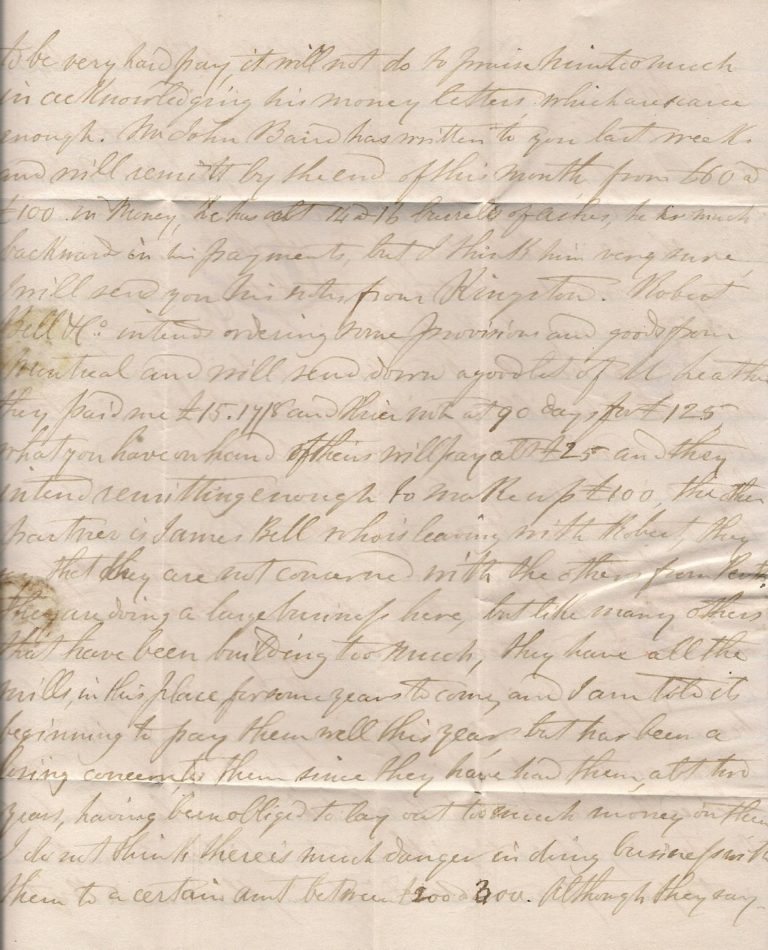 to be very hard pay, it will not do to praise him too much
in acknowledging his money letters, which are scarce
enough. Mr John Baird has written to you last week
and will remitt by the end of this month from £60 a
£100 in Money, he has abt 14 a 16 barrells of ashes, he is much
backward in his payments, but I think him very sure,
I will send you his from Kingston. Robert
Bell & Co. intends ordering some provisions and goods from
Montreal and will send down a good lot of U leather
they paid me £15.17/8 and their note at 90 days for £125
what you have on hand of theirs will pay abt £25 and they
intend remitting enough to make up £100, the other
partner is James Bell who is leaving with Robert, they
say that they are not concerned with the others from Perth.
They are doing a large business here, but like many others
that have been building too much, they have all the
mills, in this place for some years to come, and I am told it is
beginning to pay them well this year but has been a
losing concern to them since they have had them, abt two
years, having been obliged to lay out too much money on them
I do not think there is much danger in doing business with
them to a certain amt between £200 a 300. Although they say